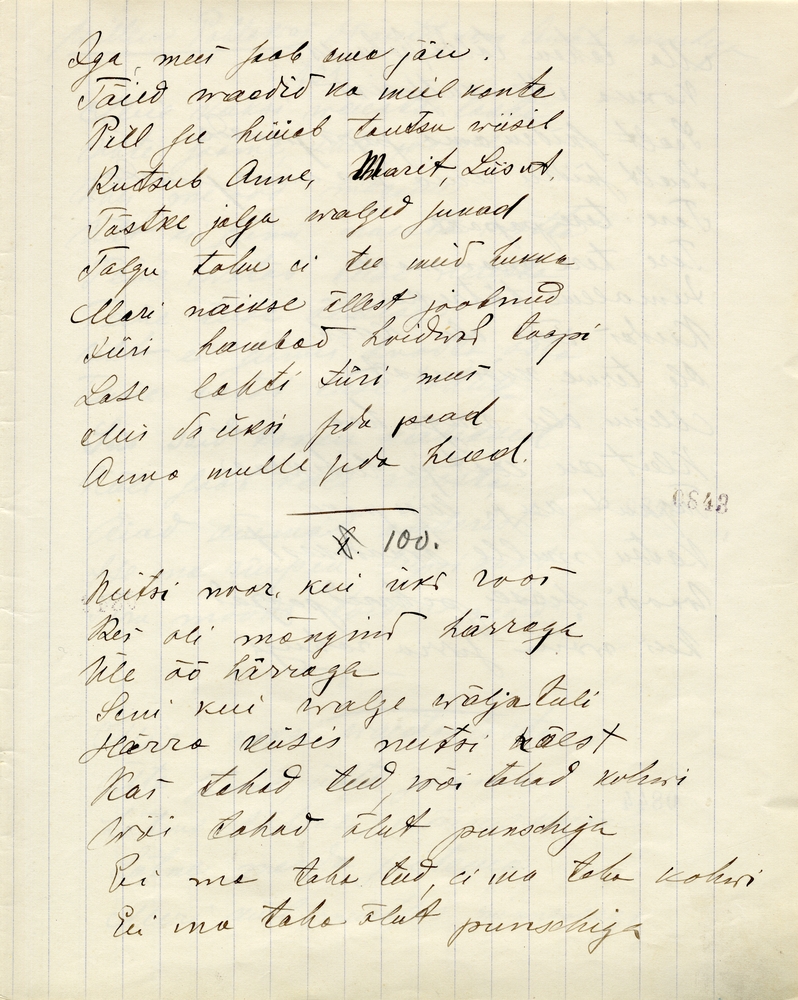 Iga mees saab oma jäu.
Täied waadid ka meil kanta
Pill see hüüab tantsu wiisil
Kutsub Anne, Marit, Liisut,
Tõstke jalga walged sukad
Talgu tolm ei tee meid hukka
Mari näikse õllest joobnud
Jüri hambad hoidwad toopi
Lase lahti Jüri mees
Mis sa üksi pea pead
Anna mulle seda head.
0843
100.
Neitsi noor, kui üks roos
Kes oli mängind härraga
Üle öö härraga
Seni kui walge wälja tuli
Härra küsis neitsi käest
Kas tahad teed, wõi tahad kohwi
Wõi tahad õlut punschiga
Ei ma taha teed, ei ma taha kohwi
Ei ma taha õlut punschiga